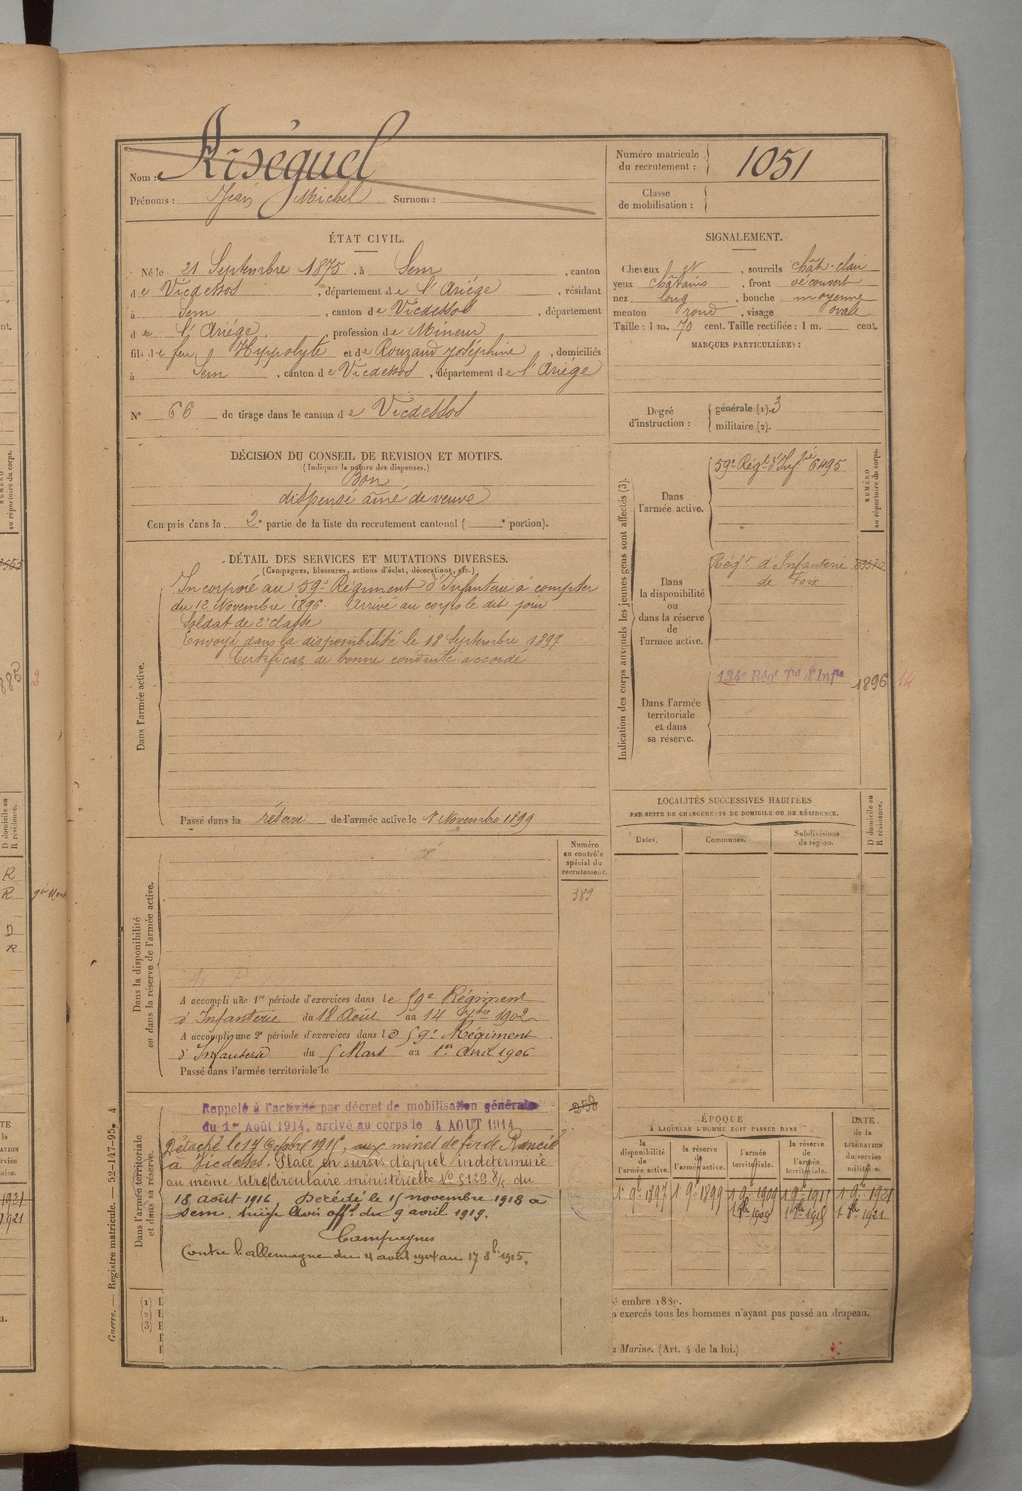 Nom : Riséguel
Prénoms : Jean Michel Surnom :
Numéro matricule
du recrutement : 1051
Classe
de mobilisation :
ÉTAT CIVIL.
Né le 21 Septembre 1875, à Sem, canton
de Vicdessos, département de l'Ariége, résidant
à Sem, canton de Vicdessos, département
de l'Ariége, profession de Mineur
fils de feu Hyppolyte et de Rouzaud Joséphine, domiciliés
à Sem, canton de Vicdessos, département de l'Ariége
N° 66 de tirage dans le canton de Vicdessos
SIGNALEMENT.
Cheveux et, sourcils chât-clair
yeux châtains, front découvert
nez long, bouche moyenne
menton rond, visage ovale
Taille : 1 m. 70 cent. Taille rectifiée : 1 m. cent.
MARQUES PARTICULIÈRES :
Degré
d'instruction :
générale (1). 3
militaire (2).
DÉCISION DU CONSEIL DE REVISION ET MOTIFS.
(Indiquer la nature des dispenses.)
Bon
dispensé aîné de veuve
Compris dans la 2e partie de la liste du recrutement cantonal ( e portion).
DÉTAIL DES SERVICES ET MUTATIONS DIVERSES.
(Campagnes, blessures, actions d'éclat, décorations, etc.)
Dans l'armée active.
Incorporé au 59e Régiment d'Infanterie à compter
du 12 Novembre 1896. Arrivé au corps le dit jour
Soldat de 2e classe
Envoyé dans la disponibilité le 18 Septembre 1897
Certificat de bonne conduite accordé
Passé dans la réserve de l'armée active le 1 Novembre 1899
Indication des corps auxquels les jeunes gens sont affectés (3).
NUMÉRO
au répertoire du corps.
Dans
l'armée active.
59e Régt d'Infie 6495
Dans
la disponibilité
ou
dans la réserve
de
l'armée active.
Régt d'Infanterie
de Foix
Dans l'armée
territoriale
et dans
sa réserve.
134e Régt Tal d'Infie 1896
14
LOCALITÉS SUCCESSIVES HABITÉES
PAR SUITE DE CHANGEMENTS DE DOMICILE OU DE RÉSIDENCE.
Dates. Communes. Subdivisions
de région.
D domicile ou
R résidence.
Dans la disponibilité
ou dans la réserve de l'armée active.
Numéro
au contrôle
spécial du
recrutement.
389
A accompli une 1re période d'exercices dans le 59e Régiment
d'Infanterie du 18 Août au 14 7bre 1902
A accompli une 2e période d'exercices dans le 59e Régiment
d'Infanterie du 5 Mars au 1er Avril 1906
Passé dans l'armée territoriale le
Dans l'armée territoriale
et dans sa réserve.
Rappelé à l'activité par décret de mobilisation générale
du 1er Août 1914, arrivé au corps le 4 AOUT 1914
Détaché le 17 Octobre 1915, aux mines de fer de Rancié
à Vicdessos. Placé en sursis d'appel indéterminé
au même titre circulaire ministérielle du
18 août 1916. Décédé le 15 novembre 1918 à
Sem. Suivt Avis offel du 9 avril 1919.
Campagnes
Contre l'allemagne du 4 août 1914 au 17 8bre 1915.
ÉPOQUE
À LAQUELLE L'HOMME DOIT PASSER DANS
la
disponibilité
de
l'armée active.
la réserve
de
l'armée active.
l'armée
territoriale.
la réserve
de
l'armée
territoriale.
DATE
de la
LIBÉRATION
du service
militaire.
1 9e 1897 1 9e 1899 1 9e 1909 1 9e 1915 1 9e 1921
1909 1915 1921
embre 1889.
n exercés tous les hommes n'ayant pas passé au drapeau.
Marine. (Art. 4 de la loi.)
Guerre. — Registre matricule. — 52-147-95. 4